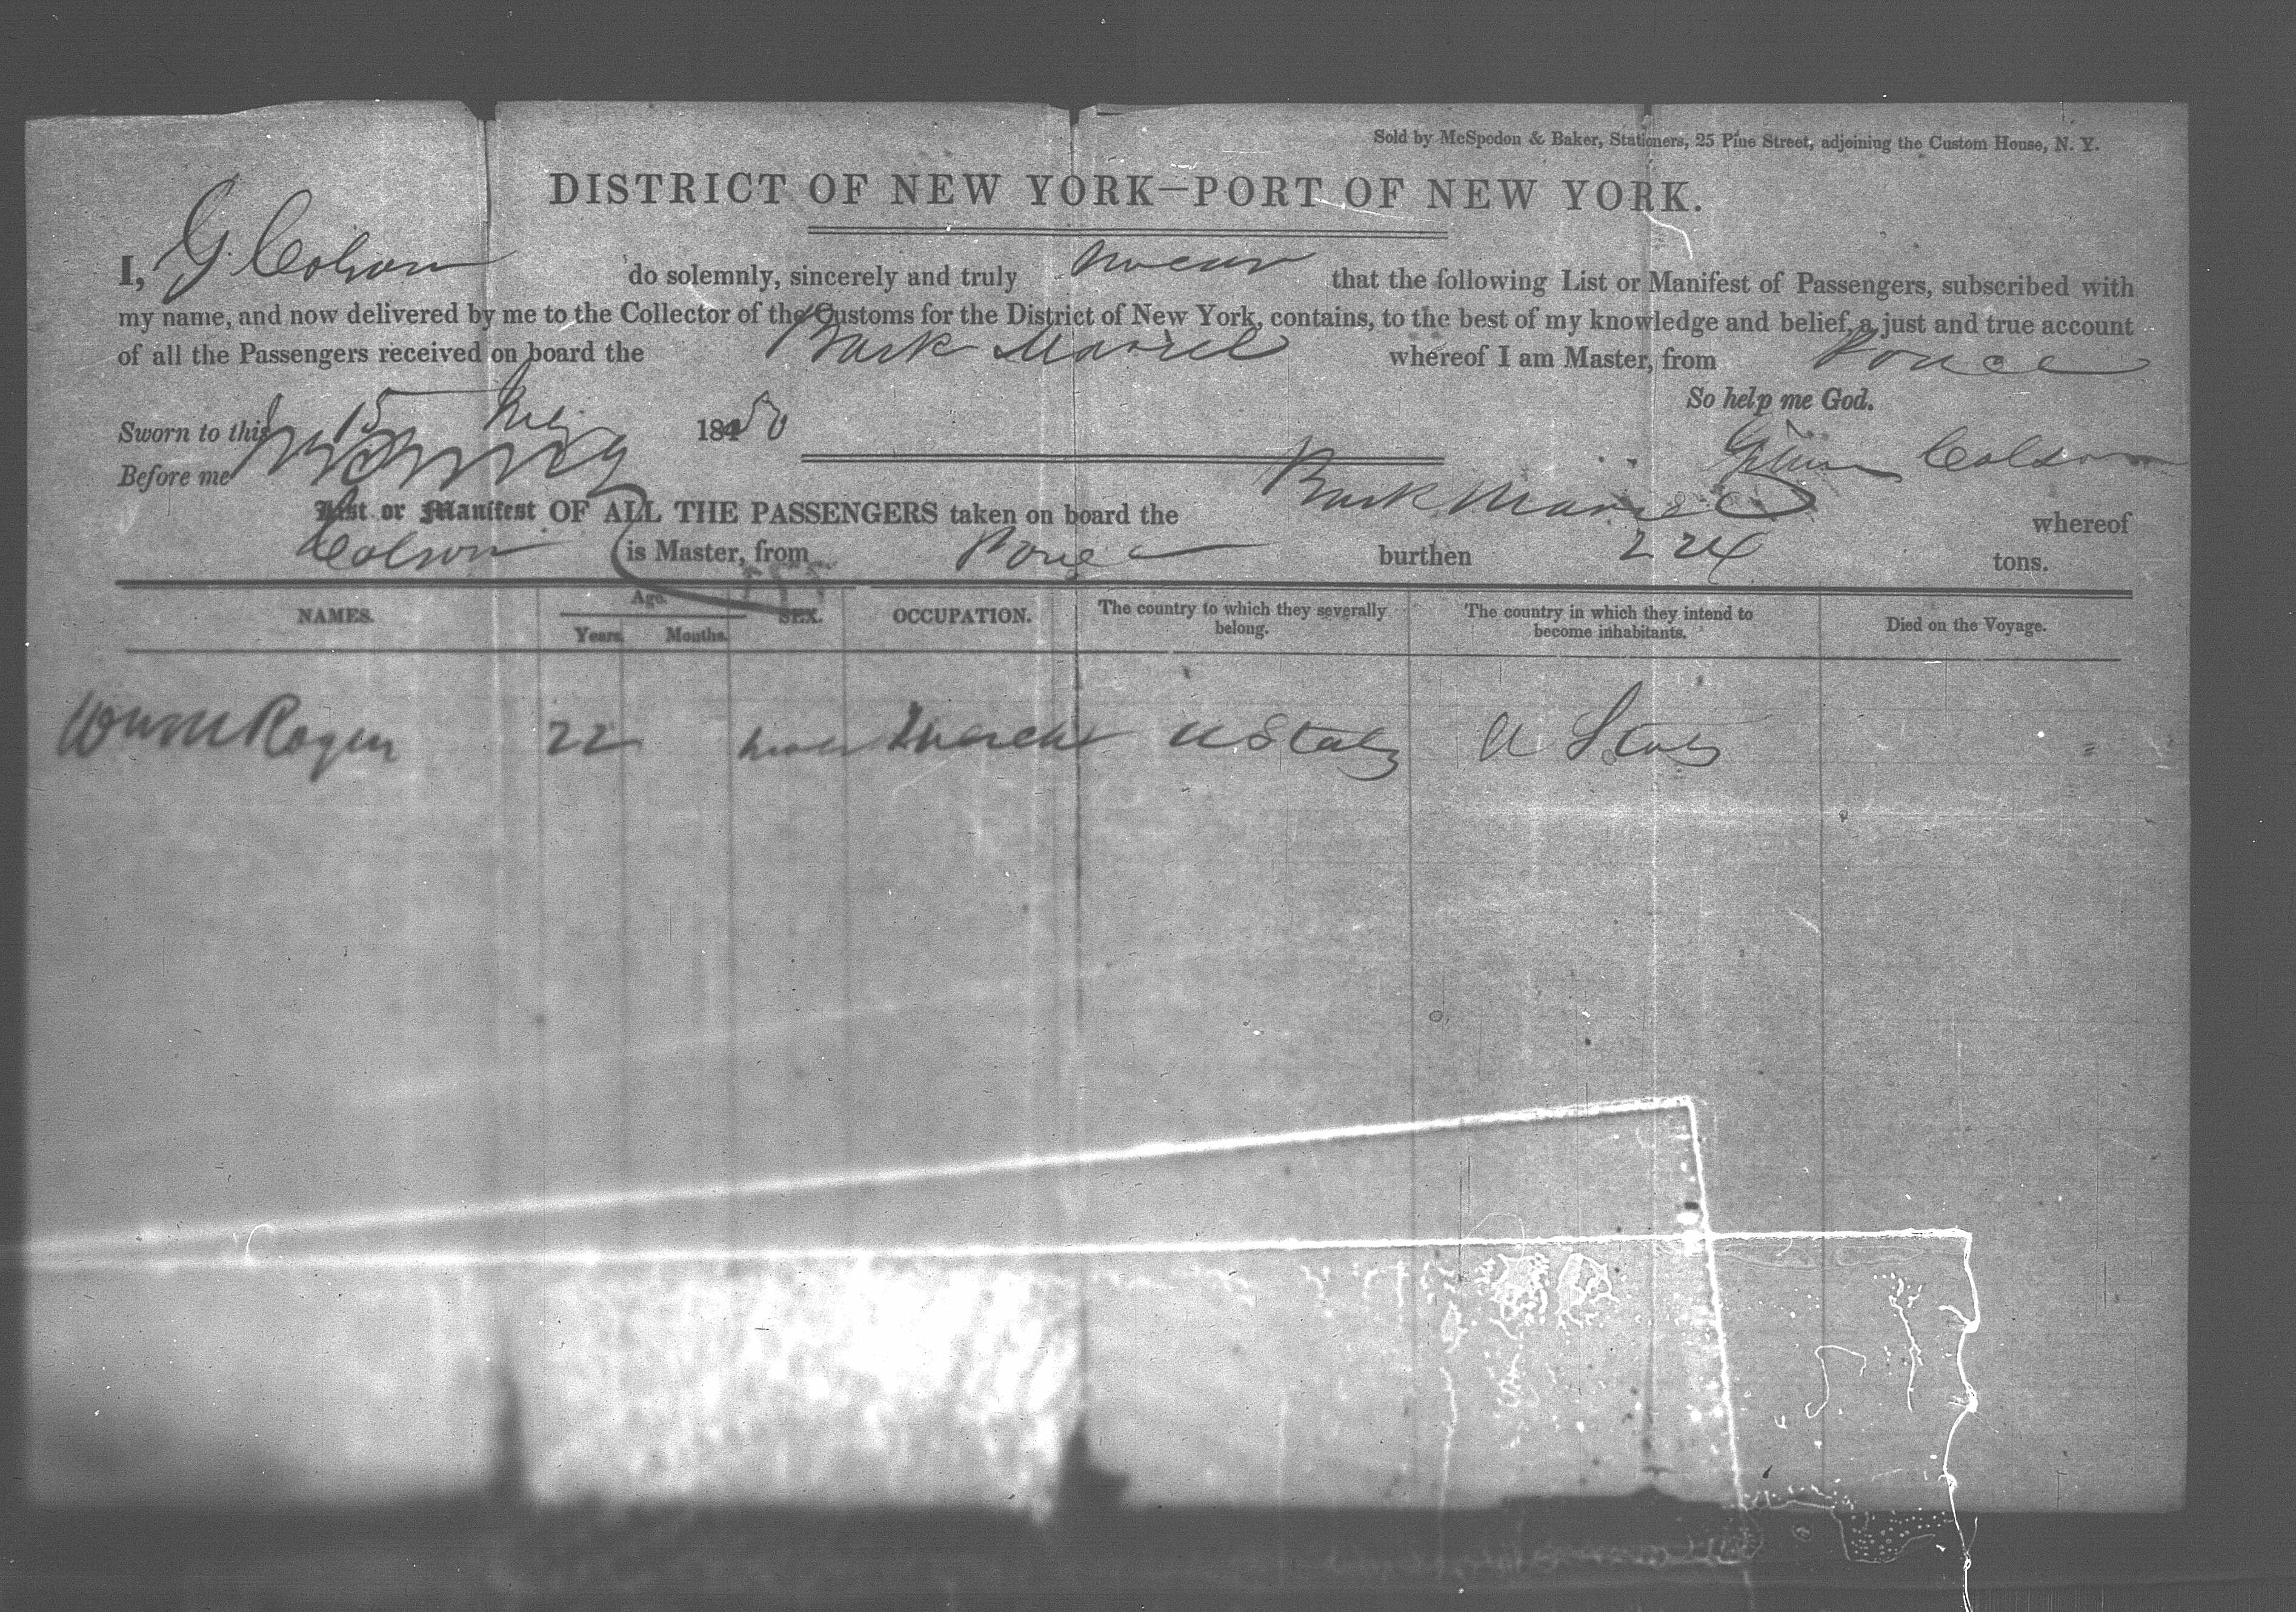 Sold by McSpedon & Baker, Stationers, 25 Pine Street, adjoining the Custom House, N. Y.
DISTRICT OF NEW YORK—PORT OF NEW YORK.
I, G. Colson do solemnly, sincerely and truly swear that the following List or Manifest of Passengers, subscribed with
my name, and now delivered by me to the Collector of the Customs for the District of New York, contains, to the best of my knowledge and belief, a just and true account
of all the Passengers received on board the Bark whereof I am Master, from Ponce
So help me God.
Sworn to this 15 1850
Before me
Colson
List or Manifest OF ALL THE PASSENGERS taken on board the Bark whereof
Colson is Master, from Ponce burthen 224 tons.
NAMES. Age. Years. Months. SEX. OCCUPATION. The country to which they severally belong. The country in which they intend to become inhabitants. Died on the Voyage.
22 Mercht U States U States